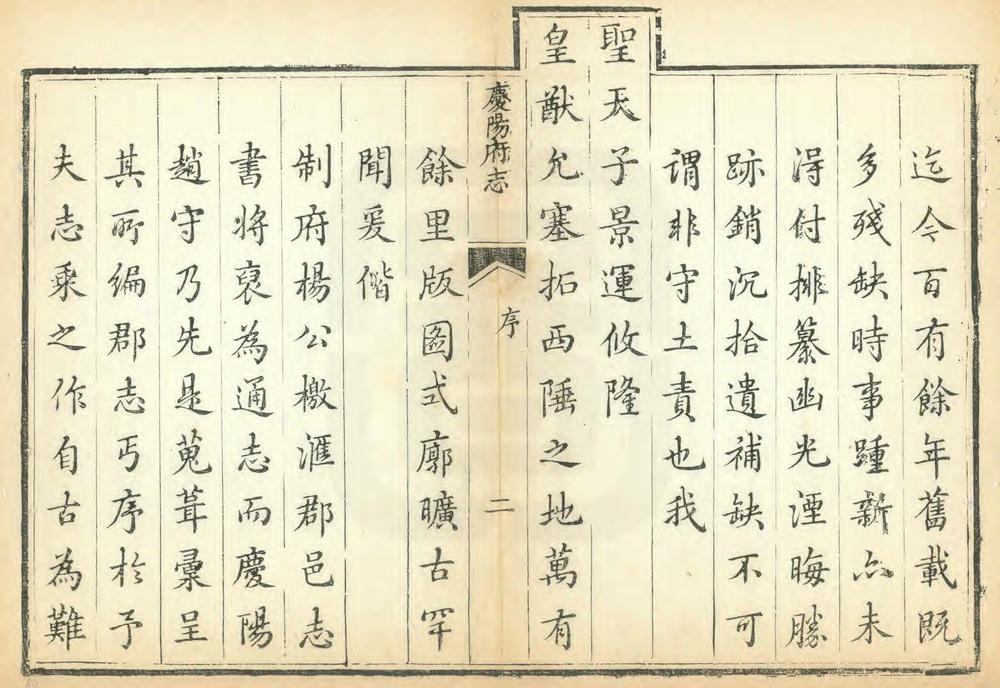 迄今百有餘年舊載既
多殘缺時事踵新亦未
得付排纂幽光湮晦勝
跡銷沉拾遺補缺不可
謂非守土責也我
聖天子景運攸隆
皇猷允塞拓西陲之地萬有
慶陽府志
序
二
餘里版圖式廓曠古罕
聞爰偕
制府楊公檄滙郡邑志
書將裒為通志而慶陽
趙守乃先是蒐葺彙呈
其所編郡志丐序於予
夫志乘之作自古為難